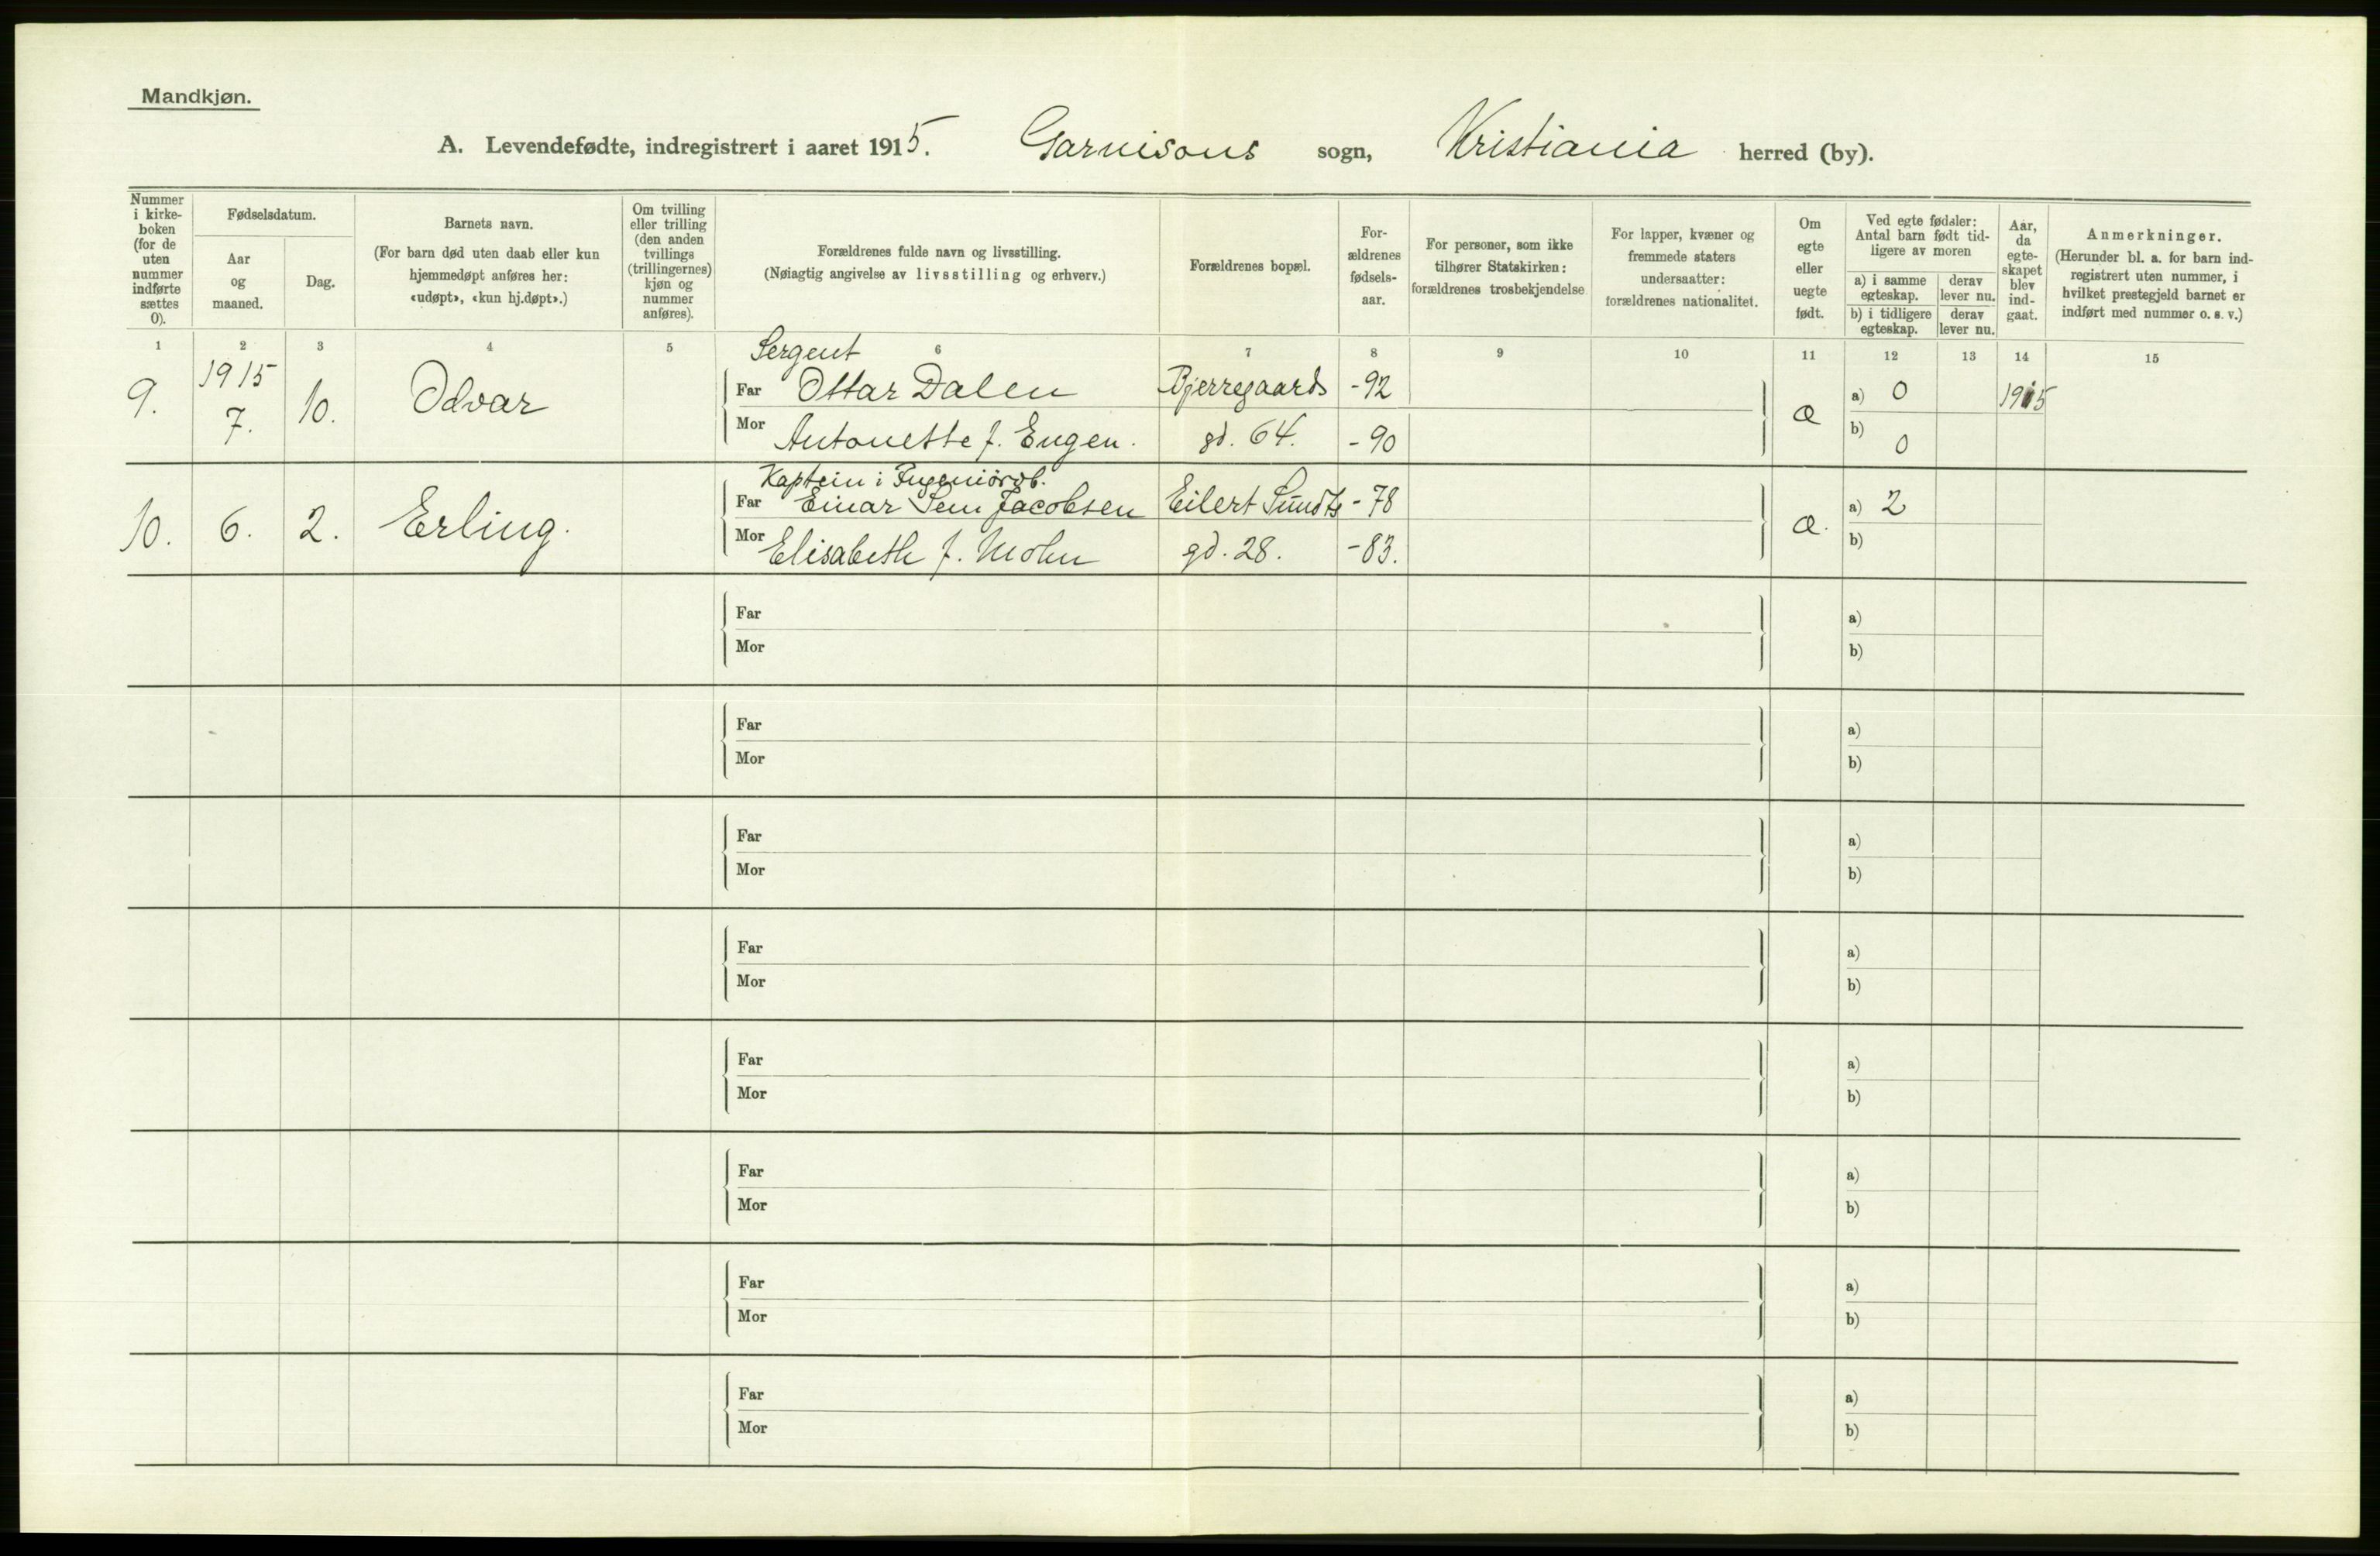 Mandkjøn.
A. Levendefødte, indregistrert i aaret 1915. Garnisons sogn, Kristiania herred (by).
Nummer i kirke-boken (for de uten nummer indførte sættes 0).
Fødselsdatum.
Aar og maaned.
Dag.
Barnets navn.
(For barn død uten daab eller kun hjemmedøpt anføres her: «udøpt», «kun hj.døpt».)
Om tvilling eller trilling (den anden tvillings (trillingernes) kjøn og nummer anføres).
Forældrenes fulde navn og livsstilling.
(Nøiagtig angivelse av livsstilling og erhverv.)
Forældrenes bopæl.
For-ældrenes fødsels-aar.
For personer, som ikke tilhører Statskirken: forældrenes trosbekjendelse
For lapper, kvæner og fremmede staters undersaatter: forældrenes nationalitet.
Om egte eller uegte født.
Ved egte fødsler: Antal barn født tid-ligere av moren
a) i samme egteskap.
derav lever nu.
b) i tidligere egteskap.
derav lever nu.
Aar, da egte-skapet blev ind-gaat.
Anmerkninger.
(Herunder bl. a. for barn ind-registrert uten nummer, i hvilket prestegjeld barnet er indført med nummer o. s. v.)
1 2 3 4 5 6 7 8 9 10 11 12 13 14 15
Sergent
9. 1915 7. 10. Odvar Far Ottar Dalen Bjerregaards -92 a) 0 1915
Mor Antonette f. Engen. gd. 64. -90 b) 0
Kaptein i
10. 6. 2. Erling. Far Einar Sem Jacobsen Eilert Sundts -78 a) 2
Mor Elisabeth f. Mohn gd. 28. -83. b)
Far a)
Mor b)
Far a)
Mor b)
Far a)
Mor b)
Far a)
Mor b)
Far a)
Mor b)
Far a)
Mor b)
Far a)
Mor b)
Far a)
Mor b)